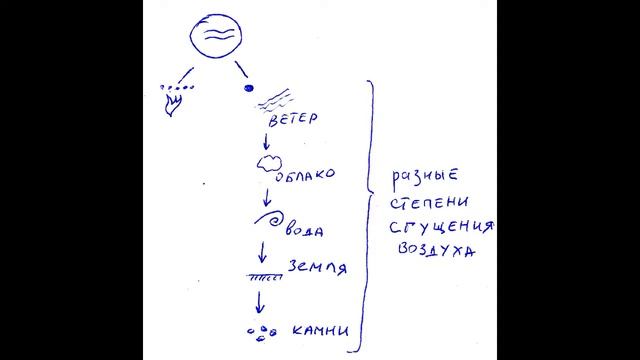 ВЕТЕР
ОБЛАКО
ВОДА
ЗЕМЛЯ
КАМНИ
разные
СТЕПЕНИ
СГУЩЕНИЯ
ВОЗДУХА